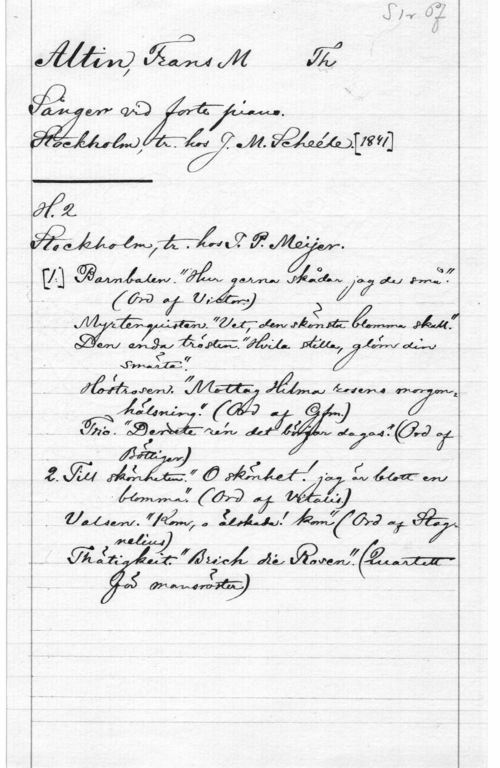 Slr 67
Altin, Frans M Th
Sånger vid forte piano.
Stockholm, tr. hos J. M. Scheéde. [1841]
H. 2
Stockholm, tr. hos J. P. Meijer.
[1.] Barnbalen. "Hur gerna skådar jag de små."
(Ord af Viktor)
Myrtenquisten. "Vet, den skönsta blomma skall."
Den enda trösten. "Hvila stilla, glöm din
smärta".
Höstrosen. "Mottag Hilma rosens morgon-
hälsning". (Ord af Gfm.)
Trio. "Den rén det börjar dagas". (Ord af
Böttiger)
2. Till skönheten. "O skönhet! jag är blott en
blomma". (Ord af Vitalis)
Valsen. "Kom, o älskade! kom" (Ord af Stag-
nelius)
Thätigkeit. "Brich die Rosen". (Quartett
för mansröster)